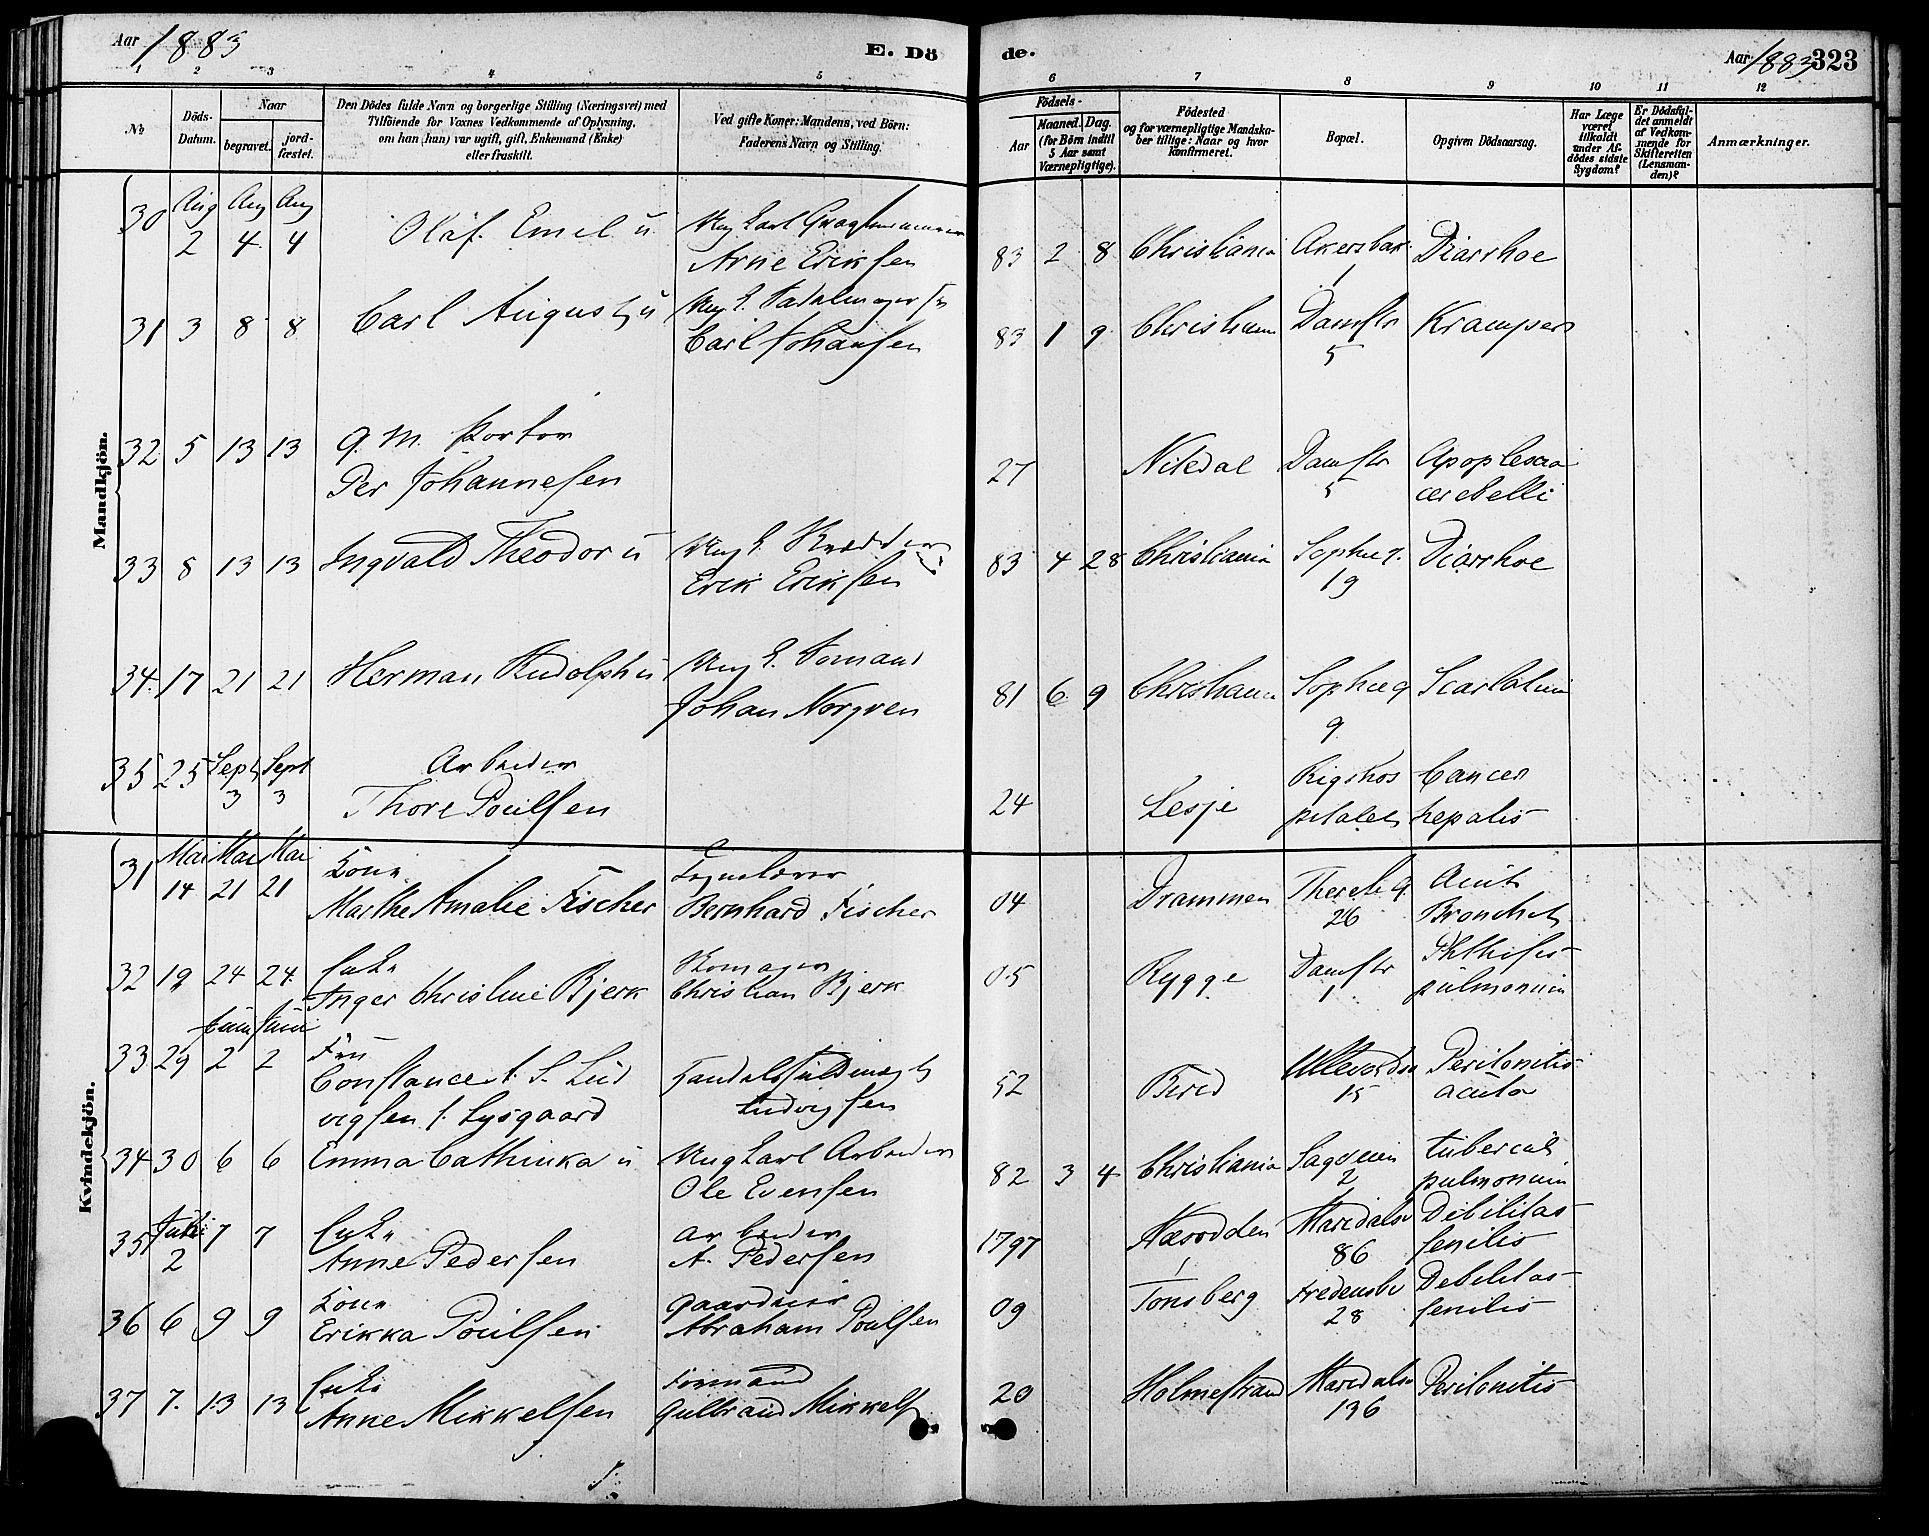 Aar 1883 E. Döde. Aar 1883 323
1 2 3 4 5 6 7 8 9 10 11 12
No Döds-Datum. Naar begravet. jordfæstet. Den Dödes fulde Navn og borgerlige Stilling (Næringsvei) med Tilföiende for Voxnes Vedkommende af Oplysning, om han (hun) var ugift, gift, Enkemand (Enke) eller fraskilt. Ved gifte Koner: Mandens, ved Börn: Faderens Navn og Stilling. Födsels- Aar Maaned. Dag. (for Börn indtil 5 Aar samt Værnepligtige). Födested og for værnepligtige Mandskaber tillige: Naar og hvor Konfirmeret. Bopæl. Opgiven Dödsaarsag. Har Læge været tilkaldt under Afdödes sidste Sygdom? Er Dödsfaldet anmeldt af Vedkommende for Skifteretten (Lensmanden)? Anmærkninger.
Mandkjön.
Aug Aug Aug
30 2 4 4 Olaf Emil u
Arne Eriksen 83 2 8 Christiania Akersbak 1 Diarrhoe
31 3 8 8 Carl August u
Carl Johansen 83 1 9 Christiania Damstr 5 Kramper
32 5 13 13 G. M. Portør
Per Johannesen 27 Nitedal Damstr 5 Apoplexia
cerebelli
33 8 13 13 Ingvald Theodor u Ung E.
Erik Eriksen 83 4 28 Christiania Sophieg. 19 Diarrhoe
34. 17 21 21 Herman Rudolph u Ung E. Formand
Johan Norgren 81 6 9 Christiania Sophieg 9 Scarlatina
35 25 Sept 3 Sept 3 Arbeider
Thore Poulsen 24 Lesje Rigshospitalet Cancer
hepatis
Kvindekjön.
Mai Mai Mai
31 14 21 21 Kone
Marthe Amalie Fischer
Bernhard Fischer 04 Drammen Thereseg 26 Acut
Bronchit
32 19 24 24. Enke
Inger Christine Bjerk Skomager
Christian Bjerk 05 Rygge Damstr 1 Phthisis
pulmonum
Juni Juni
33 29 2 2 Fru
Constance S. Ludvigsen f. Lysgaard Handelsfuldmægt
Ludvigsen 52 Bired Ullevoldsv 15 Peritonitis
acuta
34 30 6 6 Emma Cathinka u Ung Karl Arbeider
Ole Evensen 82 3 4 Christiania Sagveien 2 tubercul
pulmonum
Juni
35 2 7 7 Enke
Anne Pedersen Arbeider
A. Pedersen 1797 Næsodden Maridalsv 86 Debilitas
senilis
36 6 9 9 Kone
Erikka Poulsen Gaardeier
Abraham Poulsen 09 Tönsberg Fredensbv 28 Debilitas
senilis
37 7. 13 13 Enke
Anne Mikkelsen Formand
Gulbrand Mikkels 20 Holmestrand Maridalsv 136 Peritonitis